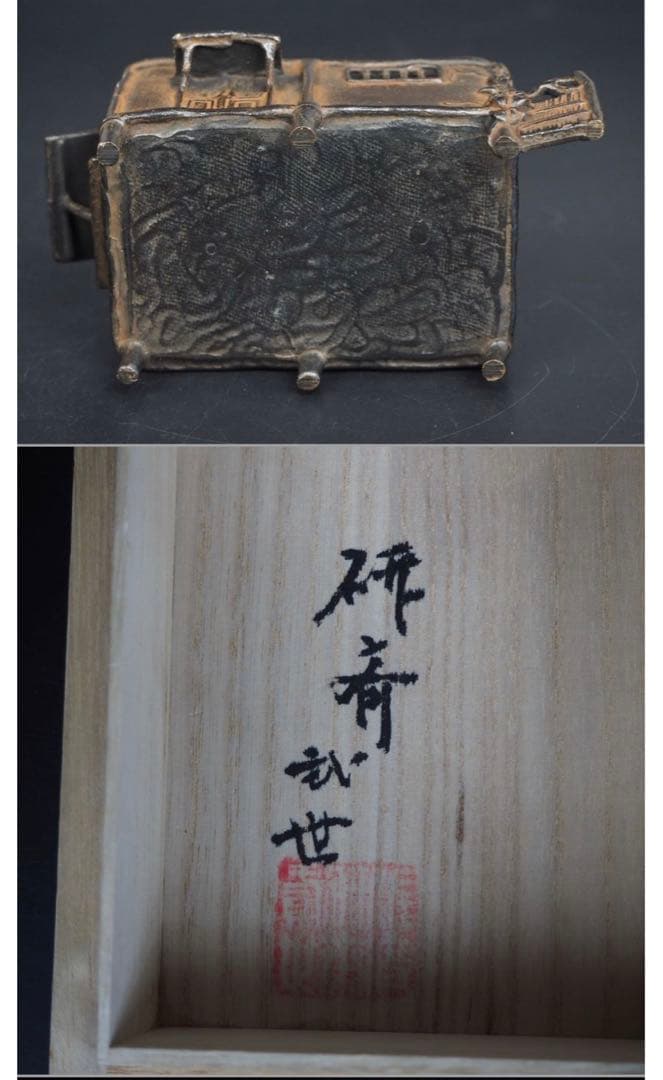 研斎弐世